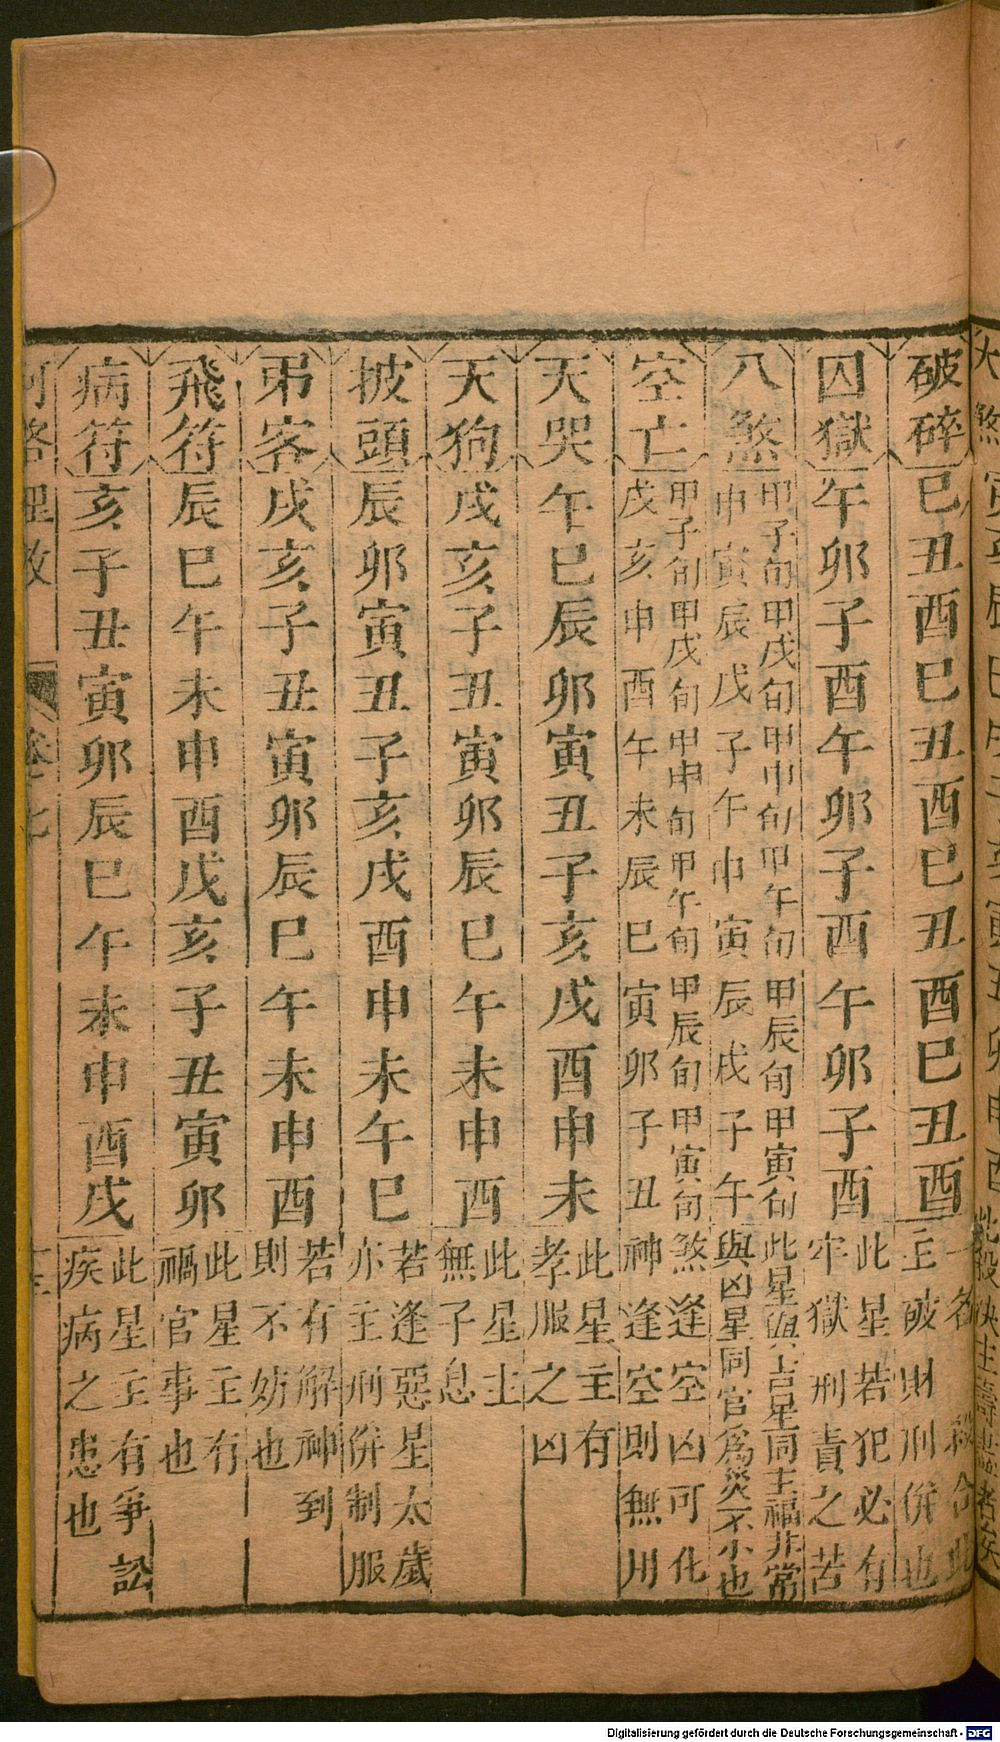 破碎 巳丑酉巳丑酉巳丑酉巳丑酉 一名 合此
主破財刑併也
囚獄 午卯子酉午卯子酉午卯子酉 此星若犯必有
牢獄刑責之苦
八煞 甲子旬甲戌旬甲申旬甲午旬甲辰旬甲寅旬 此星與吉星同主福非常
申寅辰戌子午申寅辰戌子午 與凶星同官為災不小也
空亡 甲子旬甲戌旬甲申旬甲午旬甲辰旬甲寅旬 煞逢空凶可化
戌亥申酉午未辰巳寅卯子丑 神逢空則無用
天哭 午巳辰卯寅丑子亥戌酉申未 此星主有
孝服之凶
天狗 戌亥子丑寅卯辰巳午未申酉 此星主
無子息
披頭 辰卯寅丑子亥戌酉申未午巳 若逢惡星太歲
亦主刑併制服
弔客 戌亥子丑寅卯辰巳午未申酉 若有解神到
則不妨也
飛符 辰巳午未申酉戌亥子丑寅卯 此星主有
禍官事也
病符 亥子丑寅卯辰巳午未申酉戌 此星主有爭訟
疾病之患也
Digitalisierung gefördert durch die Deutsche Forschungsgemeinschaft - DFG